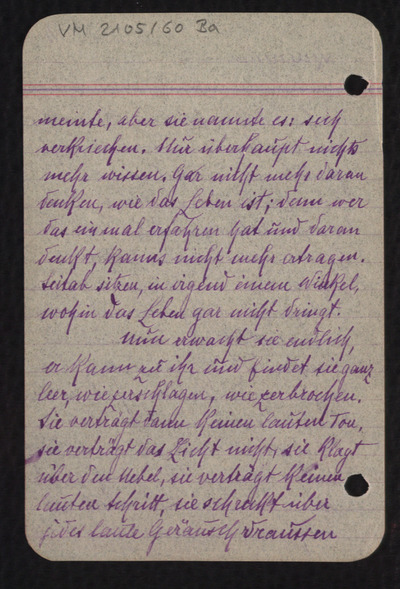 VM 2105/60 Ba
meinte, aber sie nannte es: sich
verkriechen. Nur überhaupt nichts
mehr wissen. Gar nicht mehr daran
denken, wie das Leben ist; denn wer
das einmal erfahren hat und daran
denkt, kanns nicht mehr ertragen.
Seitab sitzen, in irgend einem Winkel,
wohin das Leben gar nicht dringt.
Nun erwacht sie endlich,
er kann zu ihr und findet sie ganz
leer, wie zerschlagen, wie zerbrochen.
Sie verträgt dann keinen lauten Ton,
sie verträgt das Licht nicht, sie klagt
über den Nebel, sie verträgt keinen
lauten Schritt, sie schrickt über
jedes laute Geräusch draussen